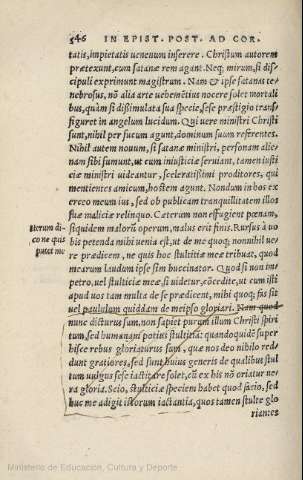 546 IN EPIST. POST. AD COR.
tatis, impietatis uenenum inserere. Christum autorem
prætexunt, cum satanæ rem agant. Neq; mirum, si dis-
cipuli exprimunt magistrum. Nam & ipse satanas te-
nebrosus, nō alia arte uehemētius nocere solet mortali
bus, quàm si dissimulata sua specie, sese præstigio trans
figuret in angelum lucidum. Qui uere ministri Christi
sunt, nihil per fucum agunt, dominum suum referentes.
Nihil autem nouum, si satanæ ministri, personam alie-
nam sibi sumunt, ut cum iniusticiæ seruiant, tamen iusti-
ciæ ministri uideantur, sceleratissimi proditores, qui
mentientes amicum, hostem agunt. Nondum in hos ex
erceo meum ius, sed ob publicam tranquillitatem illos
suæ maliciæ relinquo. Cæterum non effugient pœnam,
siquidem malorū operum, malus erit finis. Rursus à uo
bis petenda mihi uenia est, ut de me quoq; nonnihil ue-
re prædicem, ne quis hoc stultitiæ meæ tribuat, quod
mearum laudum ipse sim buccinator. Quod si non im-
petro, uel stulticiæ meæ si uidetur, cōcedite, ut cum isti
apud uos tam multa de se prædicent, mihi quoq; fas sit
uel paululum quiddam de meipso gloriari. Nam quod
nunc dicturus sum, non sapit purum illum Christi spiri
tum, sed humanam potius stultitiā: quandoquidē super
hisce rebus gloriaturus sum, quæ nos deo nihilo red-
dunt gratiores, sed sunt huius generis de qualibus stul
tum uulgus sese iactitare solet, cū ex his nō oriatur ue
ra gloria. Scio, stulticiæ speciem habet quod facio, sed
huc me adigit istorum iactantia, quos tamen stulte glo
rian=es
Iterum di-
co ne quis
putet me
Ministerio de Educación, Cultura y Deporte